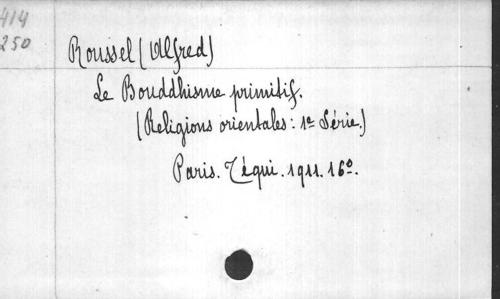 414
250
Roussel (Alfred)
Le Bouddhisme primitif.
(Religions orientales: 1e Série.)
Paris. Téqui. 1911. 16º.